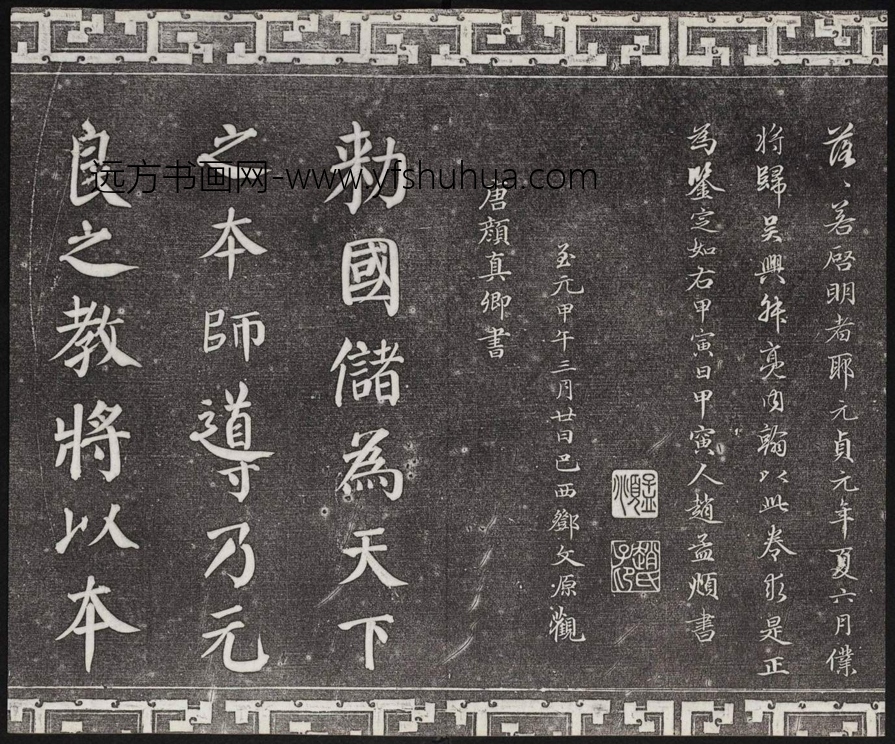 落〻若啓明者耶元貞元年夏六月僕
將歸吳興叔亮内翰以此卷求是正
為鑒定如右甲寅日甲寅人趙孟頫書
孟頫
趙氏子印
至元甲午三月廿日巴西鄧文源觀
唐顏真卿書
勑國儲為天下
之本師導乃元
良之教將以本
远方书画网-www.yfshuhua.com